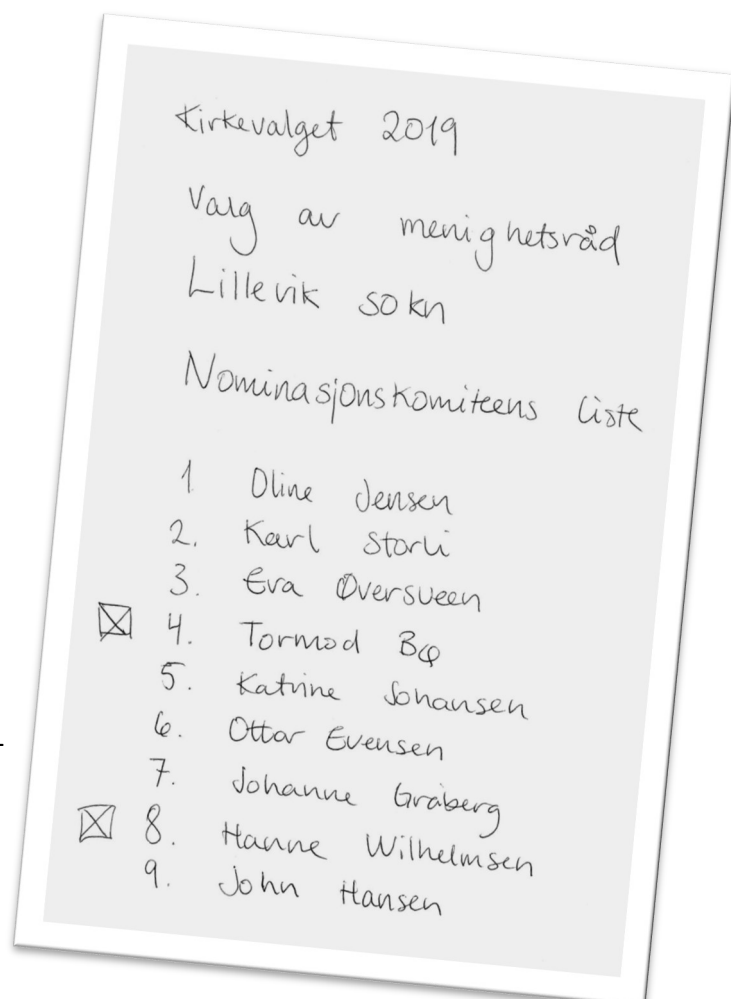 Kirkevalget 2019
Valg av menighetsråd
Lillevik sokn
Nominasjonskomiteens liste
1 Oline Jensen
2. Karl Storli
3. Eva Øversveen
☒ 4. Tormod Bø
5. Katrine Johansen
6. Ottar Evensen
7. Johanne Gråberg
☒ 8. Hanne Wilhelmsen
9. John Hansen